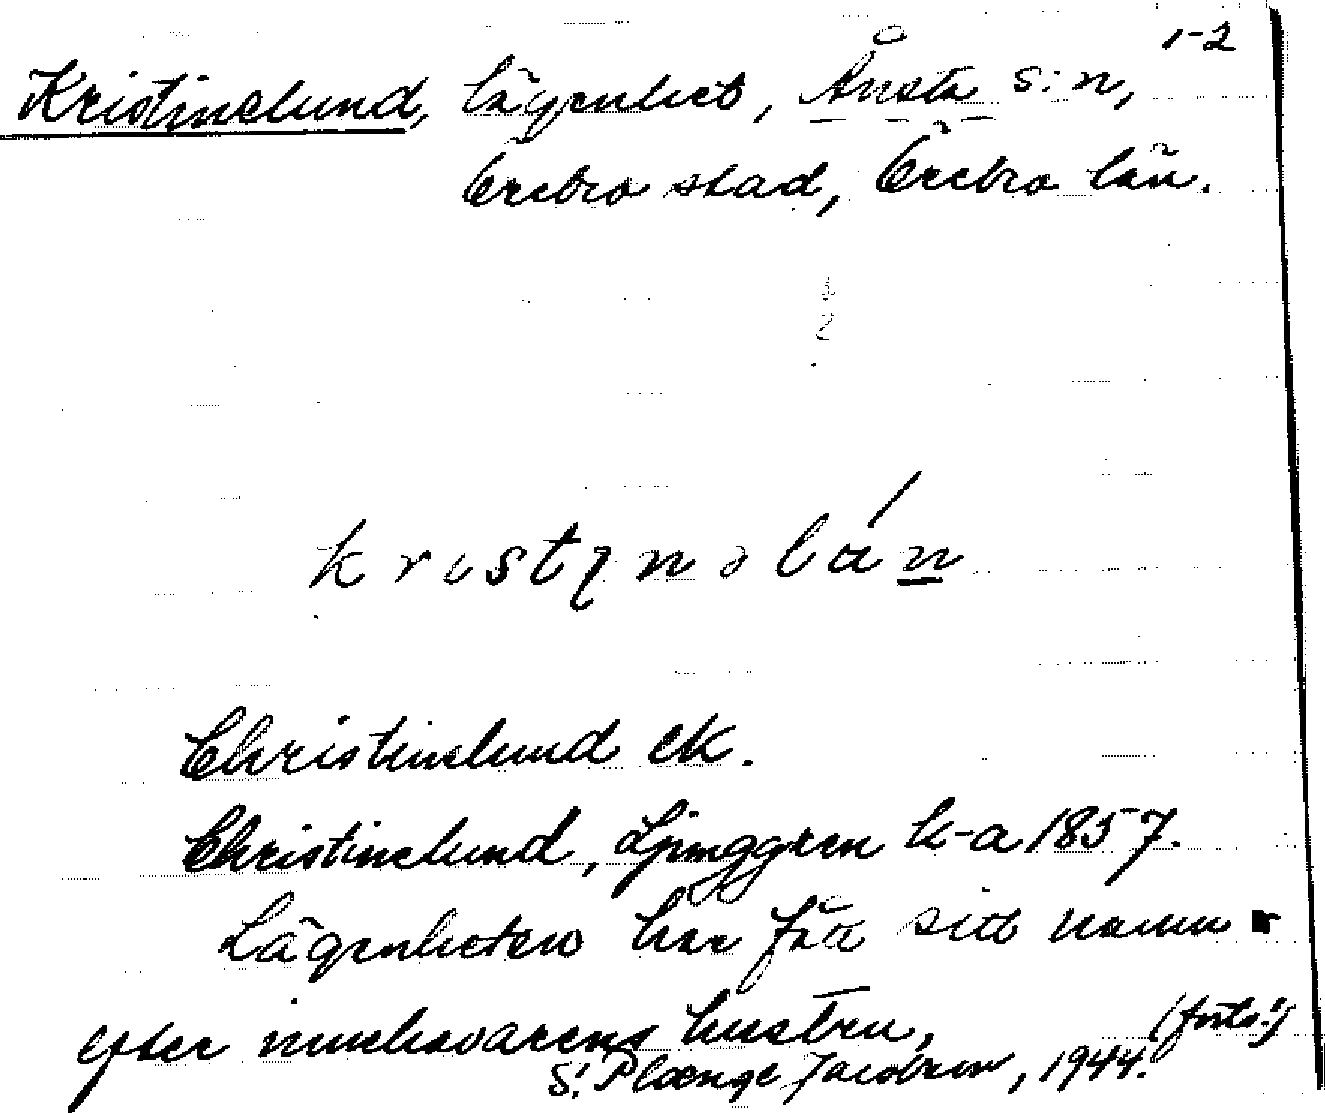 1-2
Kristinelund, lägenhet, Ånsta s:n,
Örebro stad, Örebro län.
1
2
Christinelund ek.
Christinelund, Ljunggren k-a 1857.
Lägenheten har fått sitt namn
efter innehavarens hustru,
(forts.!)
S. Plænge Jacobson, 1944.